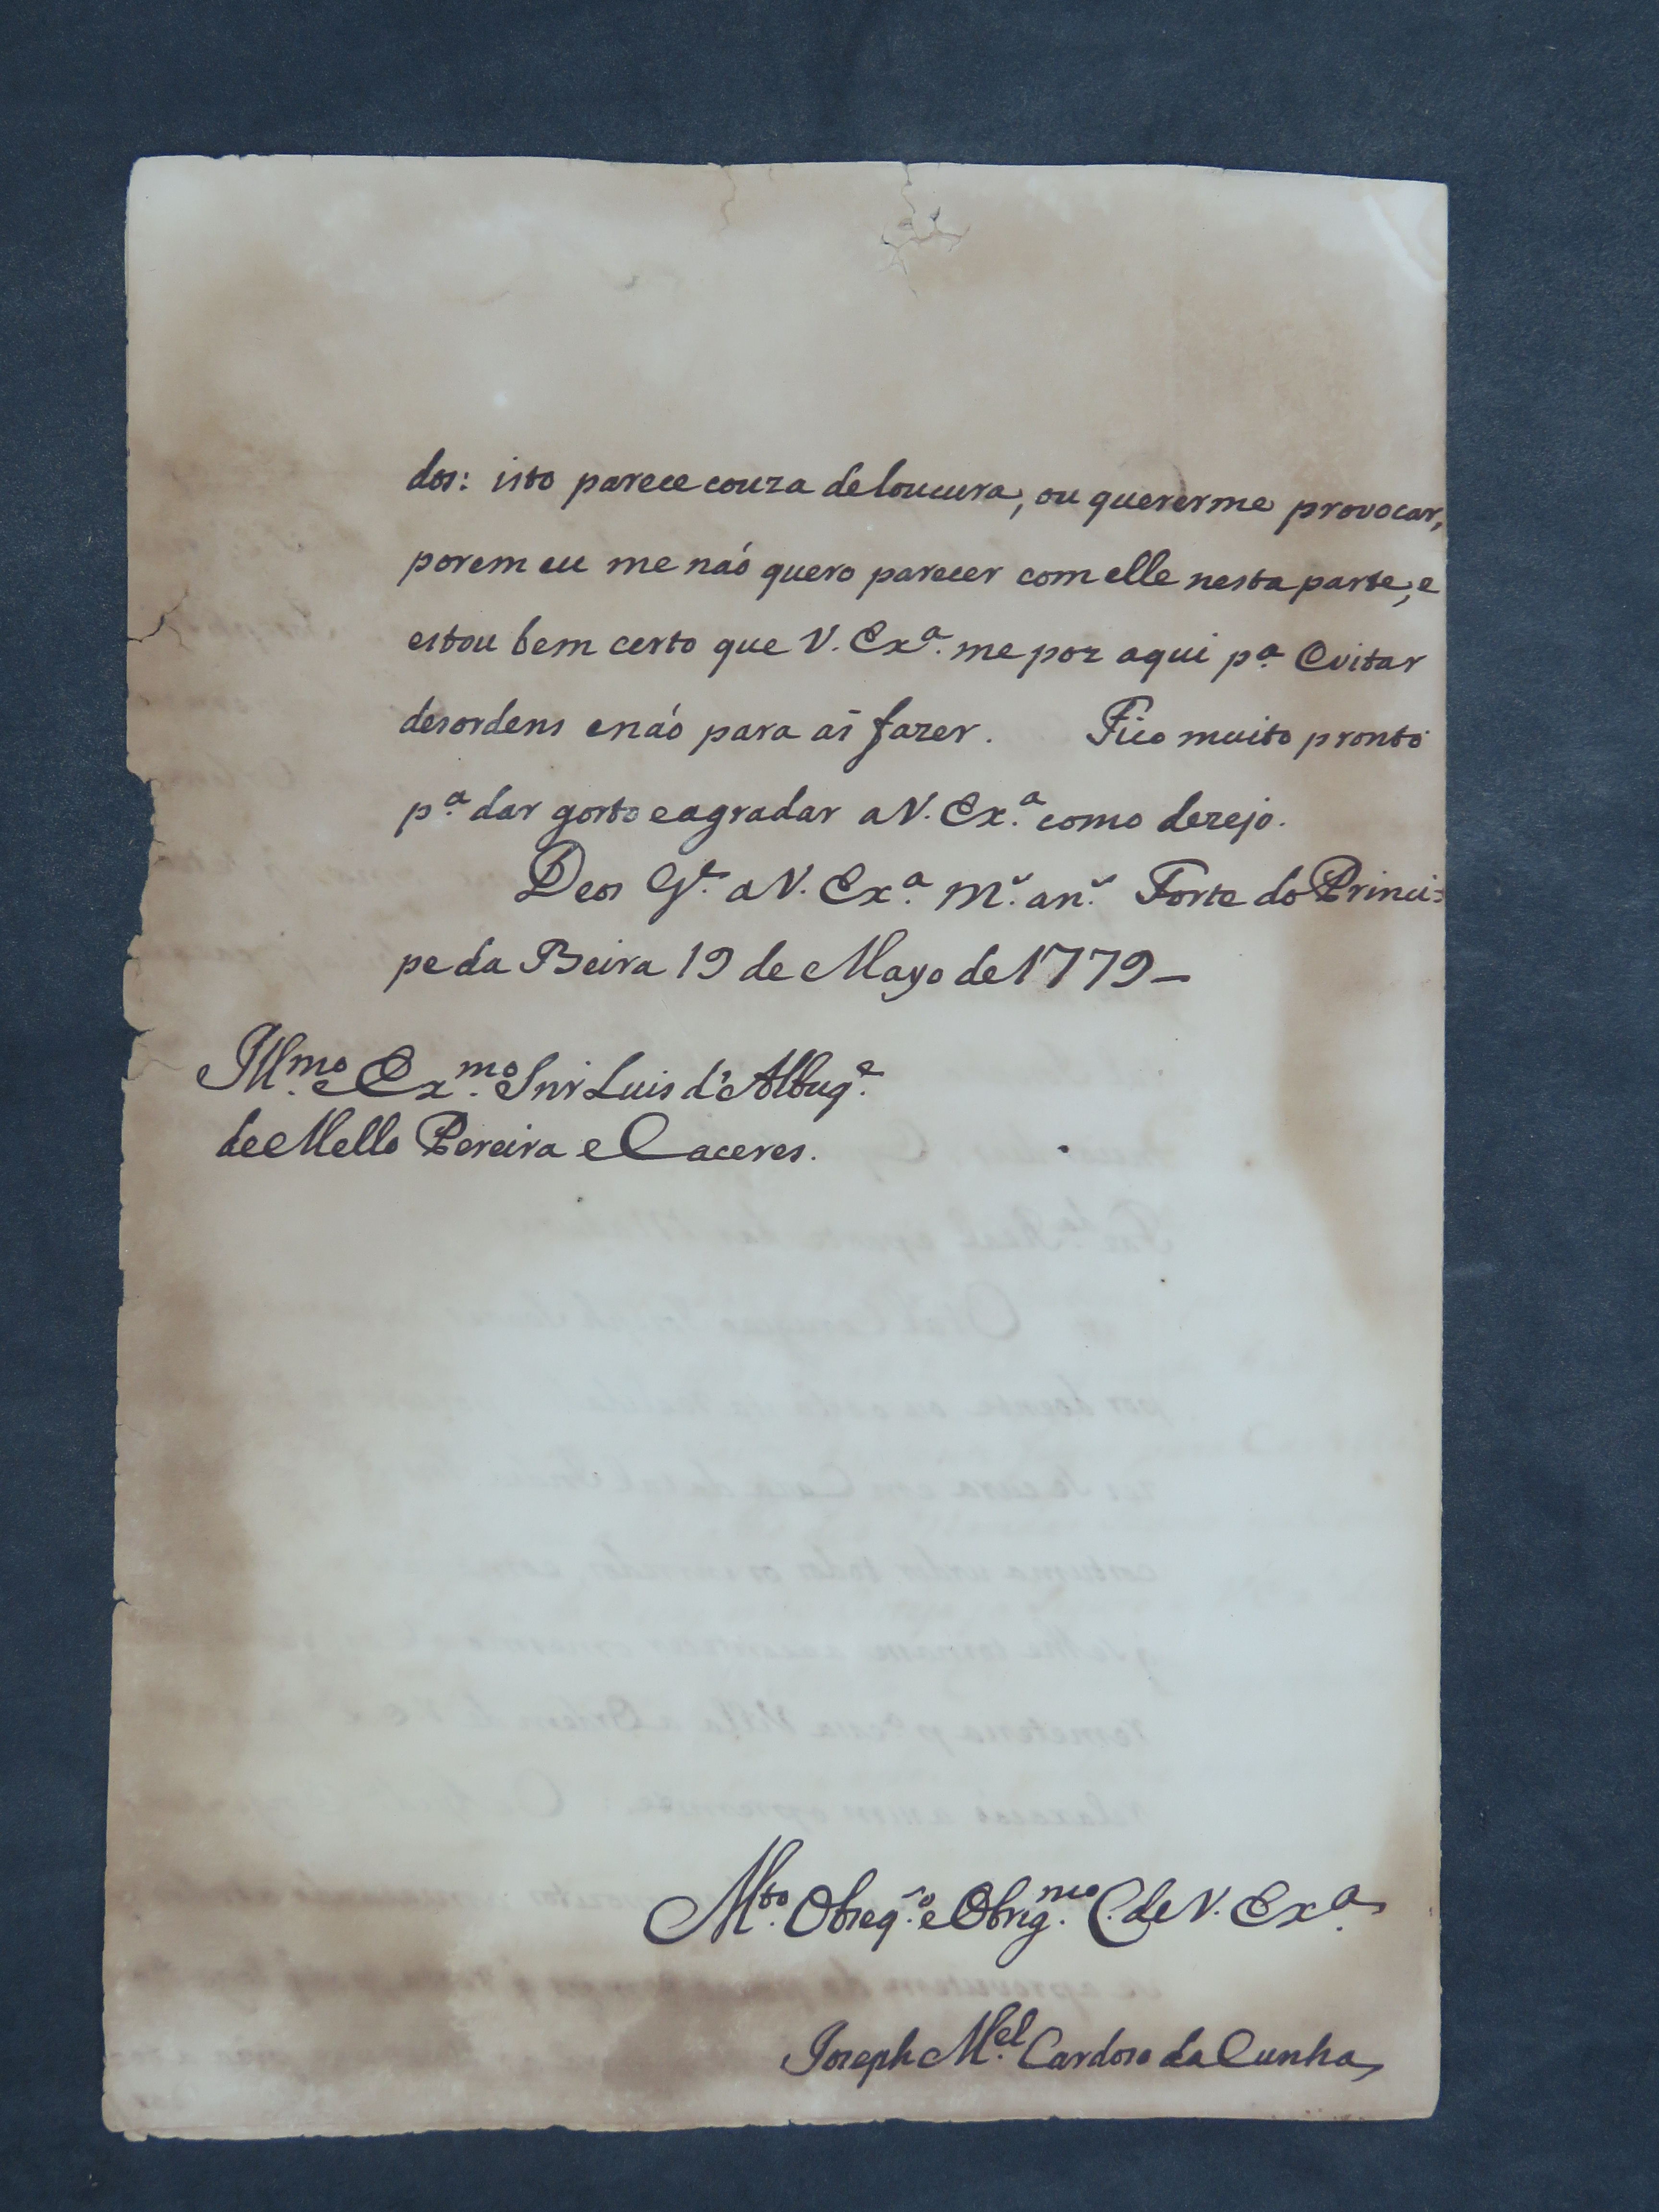 dos: isto parece couza de loucura, ou quererme provocar,
porem eu me naó quero parecer com elle nesta parte, e
estou bem certo que V. Exª. me poz aqui pª. Evitar
desordens e naó para as fazer. Fico muito pronto
pª. dar gosto e agradar a V. Exª. como dezejo.
Deos Gᵉ. a V. Exª. mˢ. anˢ. Forte do Princi=
pe da Beira 19 de Mayo de 1779_
Illᵐᵒ. e Exᵐᵒ. Snr Luis d'Albuqᵉ.
de Mello Pereira e Caceres.
Mᵗᵒ. Obseqᵒ. e Obrigᵐᵒ. C. de V. Exª.
Joseph Mᵉˡ. Cardoso da Cunha